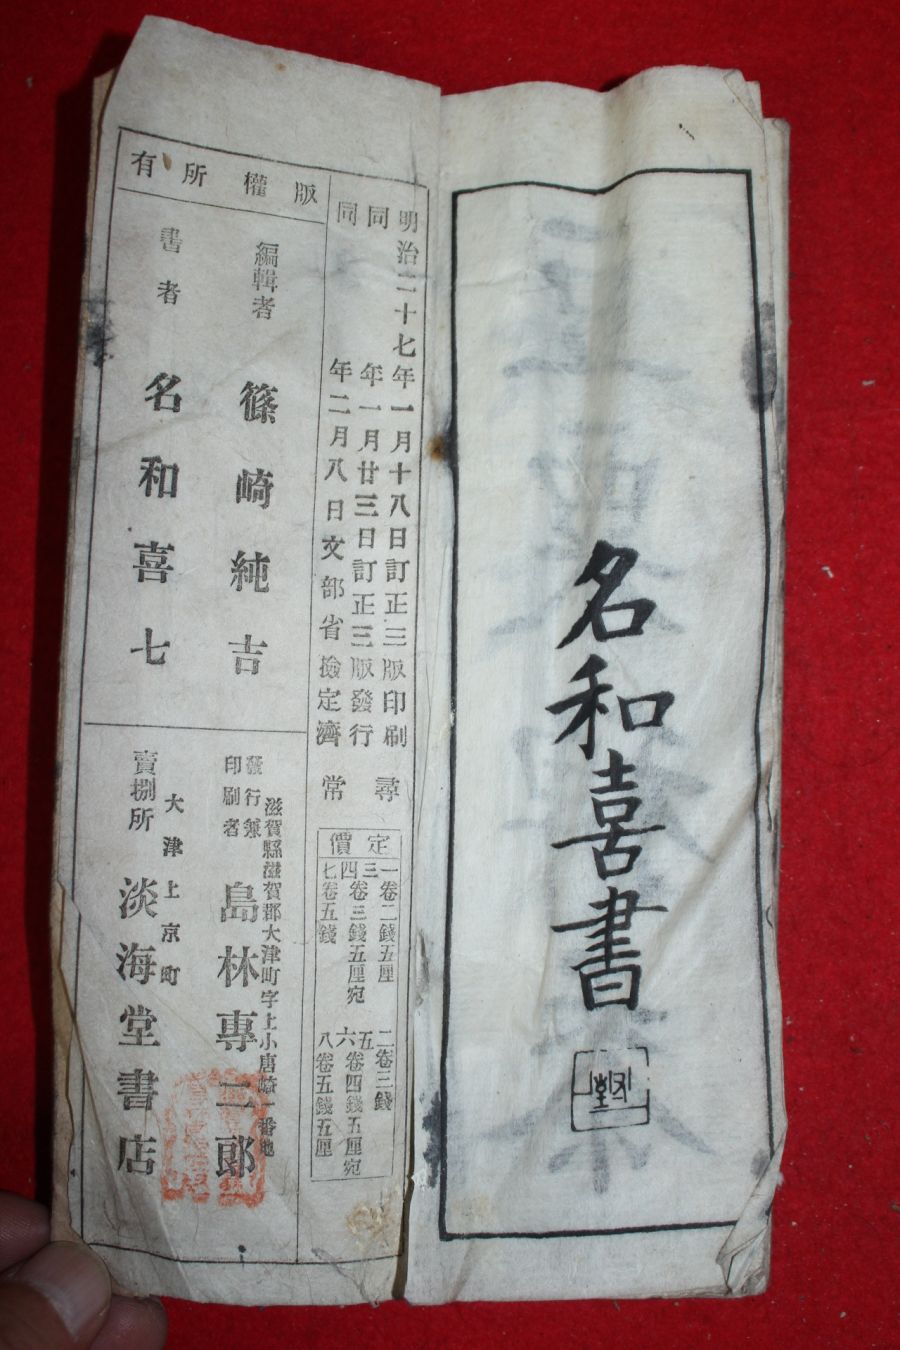 名和喜書
明治二十七年一月十八日訂正三版印刷
同年一月廿三日訂正三版發行
同年二月八日文部省檢定濟
尋常
定價
一卷二錢五厘
二卷三錢
三四卷三錢五厘宛
五六卷四錢五厘宛
七卷五錢
八卷五錢五厘
版權所有
編輯者 篠崎純吉
書者 名和喜七
滋賀縣滋賀郡大津町字上小唐崎一番地
發行兼印刷者 島林專二郎
大津上京町
賣捌所 淡海堂書店